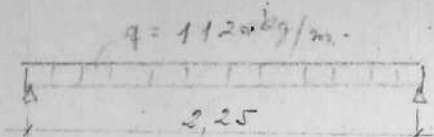 q = 1120 kg/m.
2,25